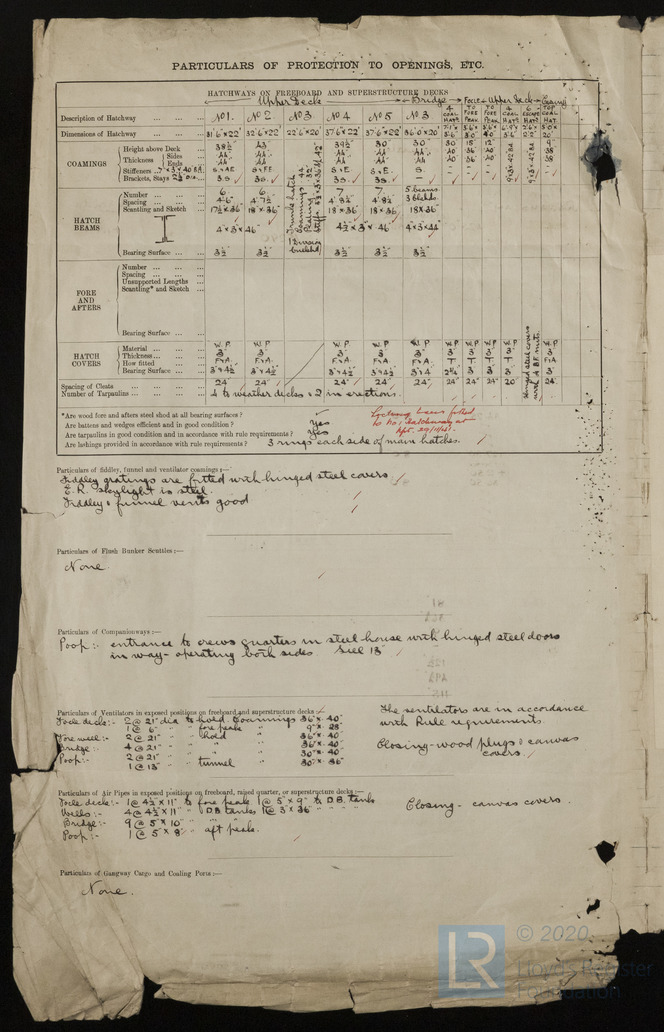 PARTICULARS OF PROTECTION TO OPENINGS, ETC.
HATCHWAYS ON FREEBOARD AND SUPERSTRUCTURE DECKS
Upper Deck Bridge Focle Upper Deck Casing
Description of Hatchway No 1. No 2 No 3 No 4 No 5 No 3 4 COAL HATS TO FORE PEAK TO FORE PEAK 4 COAL HATS 6 ESCAPE HATS TOP COAL HAT.
Dimensions of Hatchway 31'6"x22' 32'6"x22' 22'6"x20' 37'6"x22' 37'6"x22' 36'0"x20'
COAMINGS
Height above Deck 38½" 43" 39½" 30" 30" 30 15 12" 9"
Thickness Sides .44 .44 .44 .44 .44 .40 .36 .40 .38
Ends .44 .44 .44 .44 .44 .40 .36 .38
Stiffeners 7" x 3" x .40 B.A. S.+E.
Brackets, Stays 3s. 3s. 3s. 3s. -
HATCH BEAMS
Number 6 6 7 7. 5 beams
Spacing 4'6" 4'7½ 4'8¼ 4'8¼ 3 blkds.
Scantling and Sketch 17½ x .36" 18" x .36" 18 x .36" 18 x .36" 18 x .36"
4" x 3" x .46" 4½ x 3" x .46" 4 x 3 x .44"
Bearing Surface 3½" 3½" 3½" 3½" 3½"
FORE AND AFTERS
Number
Spacing
Unsupported Lengths
Scantling* and Sketch
Bearing Surface
Hinged steel covers
HATCH COVERS
Material W.P. W.P. W.P. W.P. W.P. W.P W.P W.P W.P W.P
Thickness 3" 3" 3" 3" 3" 3 3 3 3 3
How fitted F+A. F+A. F+A. F+A. F+A. T T T T F+A.
Bearing Surface 3"+4½" 3"+4½" 3"+4½" 3"+4½" 3"+4 2¼ 3 3 3 3
Spacing of Cleats 24" 24" 24" 24" 24" 24" 24" 24" 20" 24"
Number of Tarpaulins 4 to weather decks + 2 in erections.
*Are wood fore and afters steel shod at all bearing surfaces?
Are battens and wedges efficient and in good condition? yes
Are tarpaulins in good condition and in accordance with rule requirements? yes
Are lashings provided in accordance with rule requirements? 3 rings each side of main hatches.
Locking bars fitted
to No 1 hatchway at
Particulars of fiddley, funnel and ventilator coamings:—
Fiddley gratings are fitted with hinged steel covers
E.R. Skylight is steel.
Fiddley & funnel vents good
Particulars of Flush Bunker Scuttles:—
None.
Particulars of Companionways:—
Poop:- entrance to crews quarters in steel house with hinged steel doors
in way - operating both sides. Sill 13"
Particulars of Ventilators in exposed positions on freeboard and superstructure decks:—
Focle deck:- 2 @ 21" dia to hold. Coamings 36" x .40"
1 @ 6" " " fore peak " 9" x .28"
Fore well:- 2 @ 21" " " hold " 36" x .40"
Bridge:- 4 @ 21" " " " " 36" x .40"
Poop:- 2 @ 21" " " " " 30" x .40"
1 @ 13" " " tunnel " 30" x .36"
The ventilators are in accordance
with Rule requirements
Closing - wood plugs & canvas
covers.
Particulars of Air Pipes in exposed positions on freeboard, raised quarter, or superstructure decks:—
Focle deck:- 1 @ 4½" x 11" to fore peak 1 @ 5" x 9" to D.B. tanks
Wells:- 4 @ 4½" x 11" " D.B. tanks 1 @ 3" x 36" " " "
Bridge:- 9 @ 5" x 10" " " "
Poop:- 1 @ 5" x 8" " aft peak.
Closing - canvas covers.
Particulars of Gangway Cargo and Coaling Ports:—
None.
LR
© 2020
Lloyd's Register
Foundation